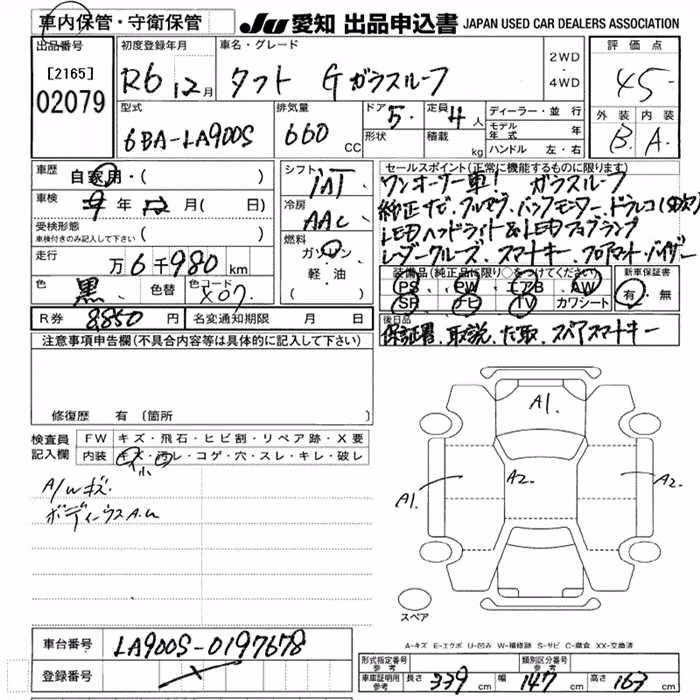 車内保管・守衛保管 JU 愛知 出品申込書 JAPAN USED CAR DEALERS ASSOCIATION
出品番号 [2165] 02079
初度登録年月 R6 12月
車名・グレード タフト Gガラスルーフ
2WD ・ 4WD
評価点 45-
外装 B 内装 A
型式 6BA-LA900S
排気量 660 CC
ドア 5 定員 4人
形状 積載 kg
ディーラー・並行
モデル年式 年
ハンドル 左・右
車歴 自家用・( )
車検 9年12月( 日)
受検形態
車検付きのみ記入して下さい ( )
走行 万6千980km
色 黒 色替 色コード X07
シフト IAT
冷房 AAC
燃料 ガソリン・軽油 ( )
R券 8,850円 名変通知期限 月 日
セールスポイント(正常に機能するものに限ります)
ワンオーナー車! ガラスルーフ
純正ナビ、フルセグ、バックモニター、ドラレコ
LEDヘッドライト&LEDフォグランプ
レーダークルーズ、スマートキー、フロアマット・バイザー
装備品(純正品に限り○をつけてください)
PS PW エアB AW
SR ナビ TV カワシート
新車保証書 有・無
後日品
保証書、取説、ナビ取、スペアスマートキー
注意事項申告欄(不具合内容等は具体的に記入して下さい)
修復歴 有(箇所
検査員記入欄
FW キズ・飛石・ヒビ割・リペア跡・X要
内装 キズ・汚レ・コゲ・穴・スレ・キレ・破レ
小
A/Wキズ
ボディーウスA.U
A1.
A1. A2. A2.
スペア
A-キズ E-エクボ U-凹み W-補修跡 S-サビ C-腐食 XX-交換済
車台番号 LA900S-0197678
登録番号
形式指定番号 参考 類別区分番号 参考
車庫証明用 参考 長さ 339 cm 幅 147 cm 高さ 163 cm